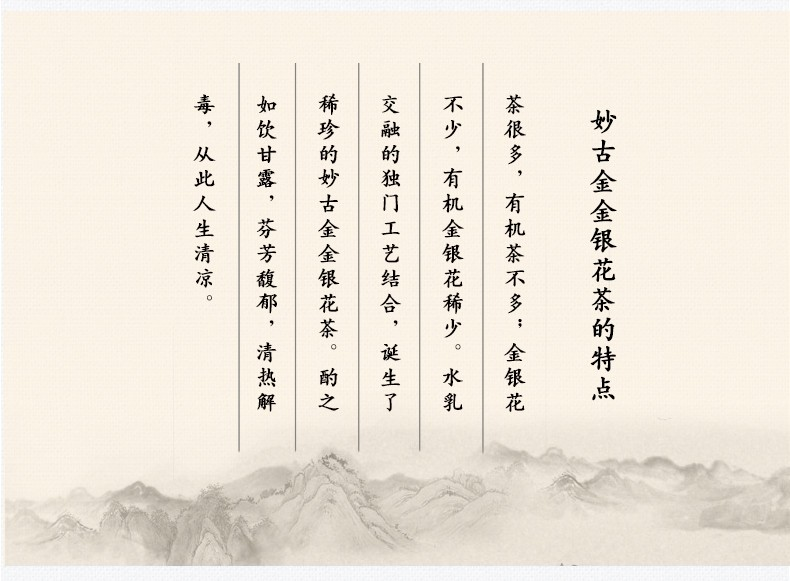 妙古金金银花茶的特点
茶很多，有机茶不多；金银花
不少，有机金银花稀少。水乳
交融的独门工艺结合，诞生了
稀珍的妙古金金银花茶。酌之
如饮甘露，芬芳馥郁，清热解
毒，从此人生清凉。